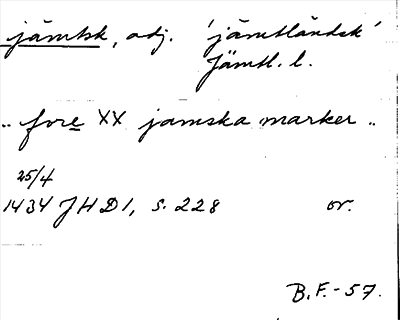 jämtsk, adj. 'jämtländsk'
Jämtl. l.
.. fore XX jamska marker ..
25/4
1434 JHD1, s. 228 or.
B.F.-57.